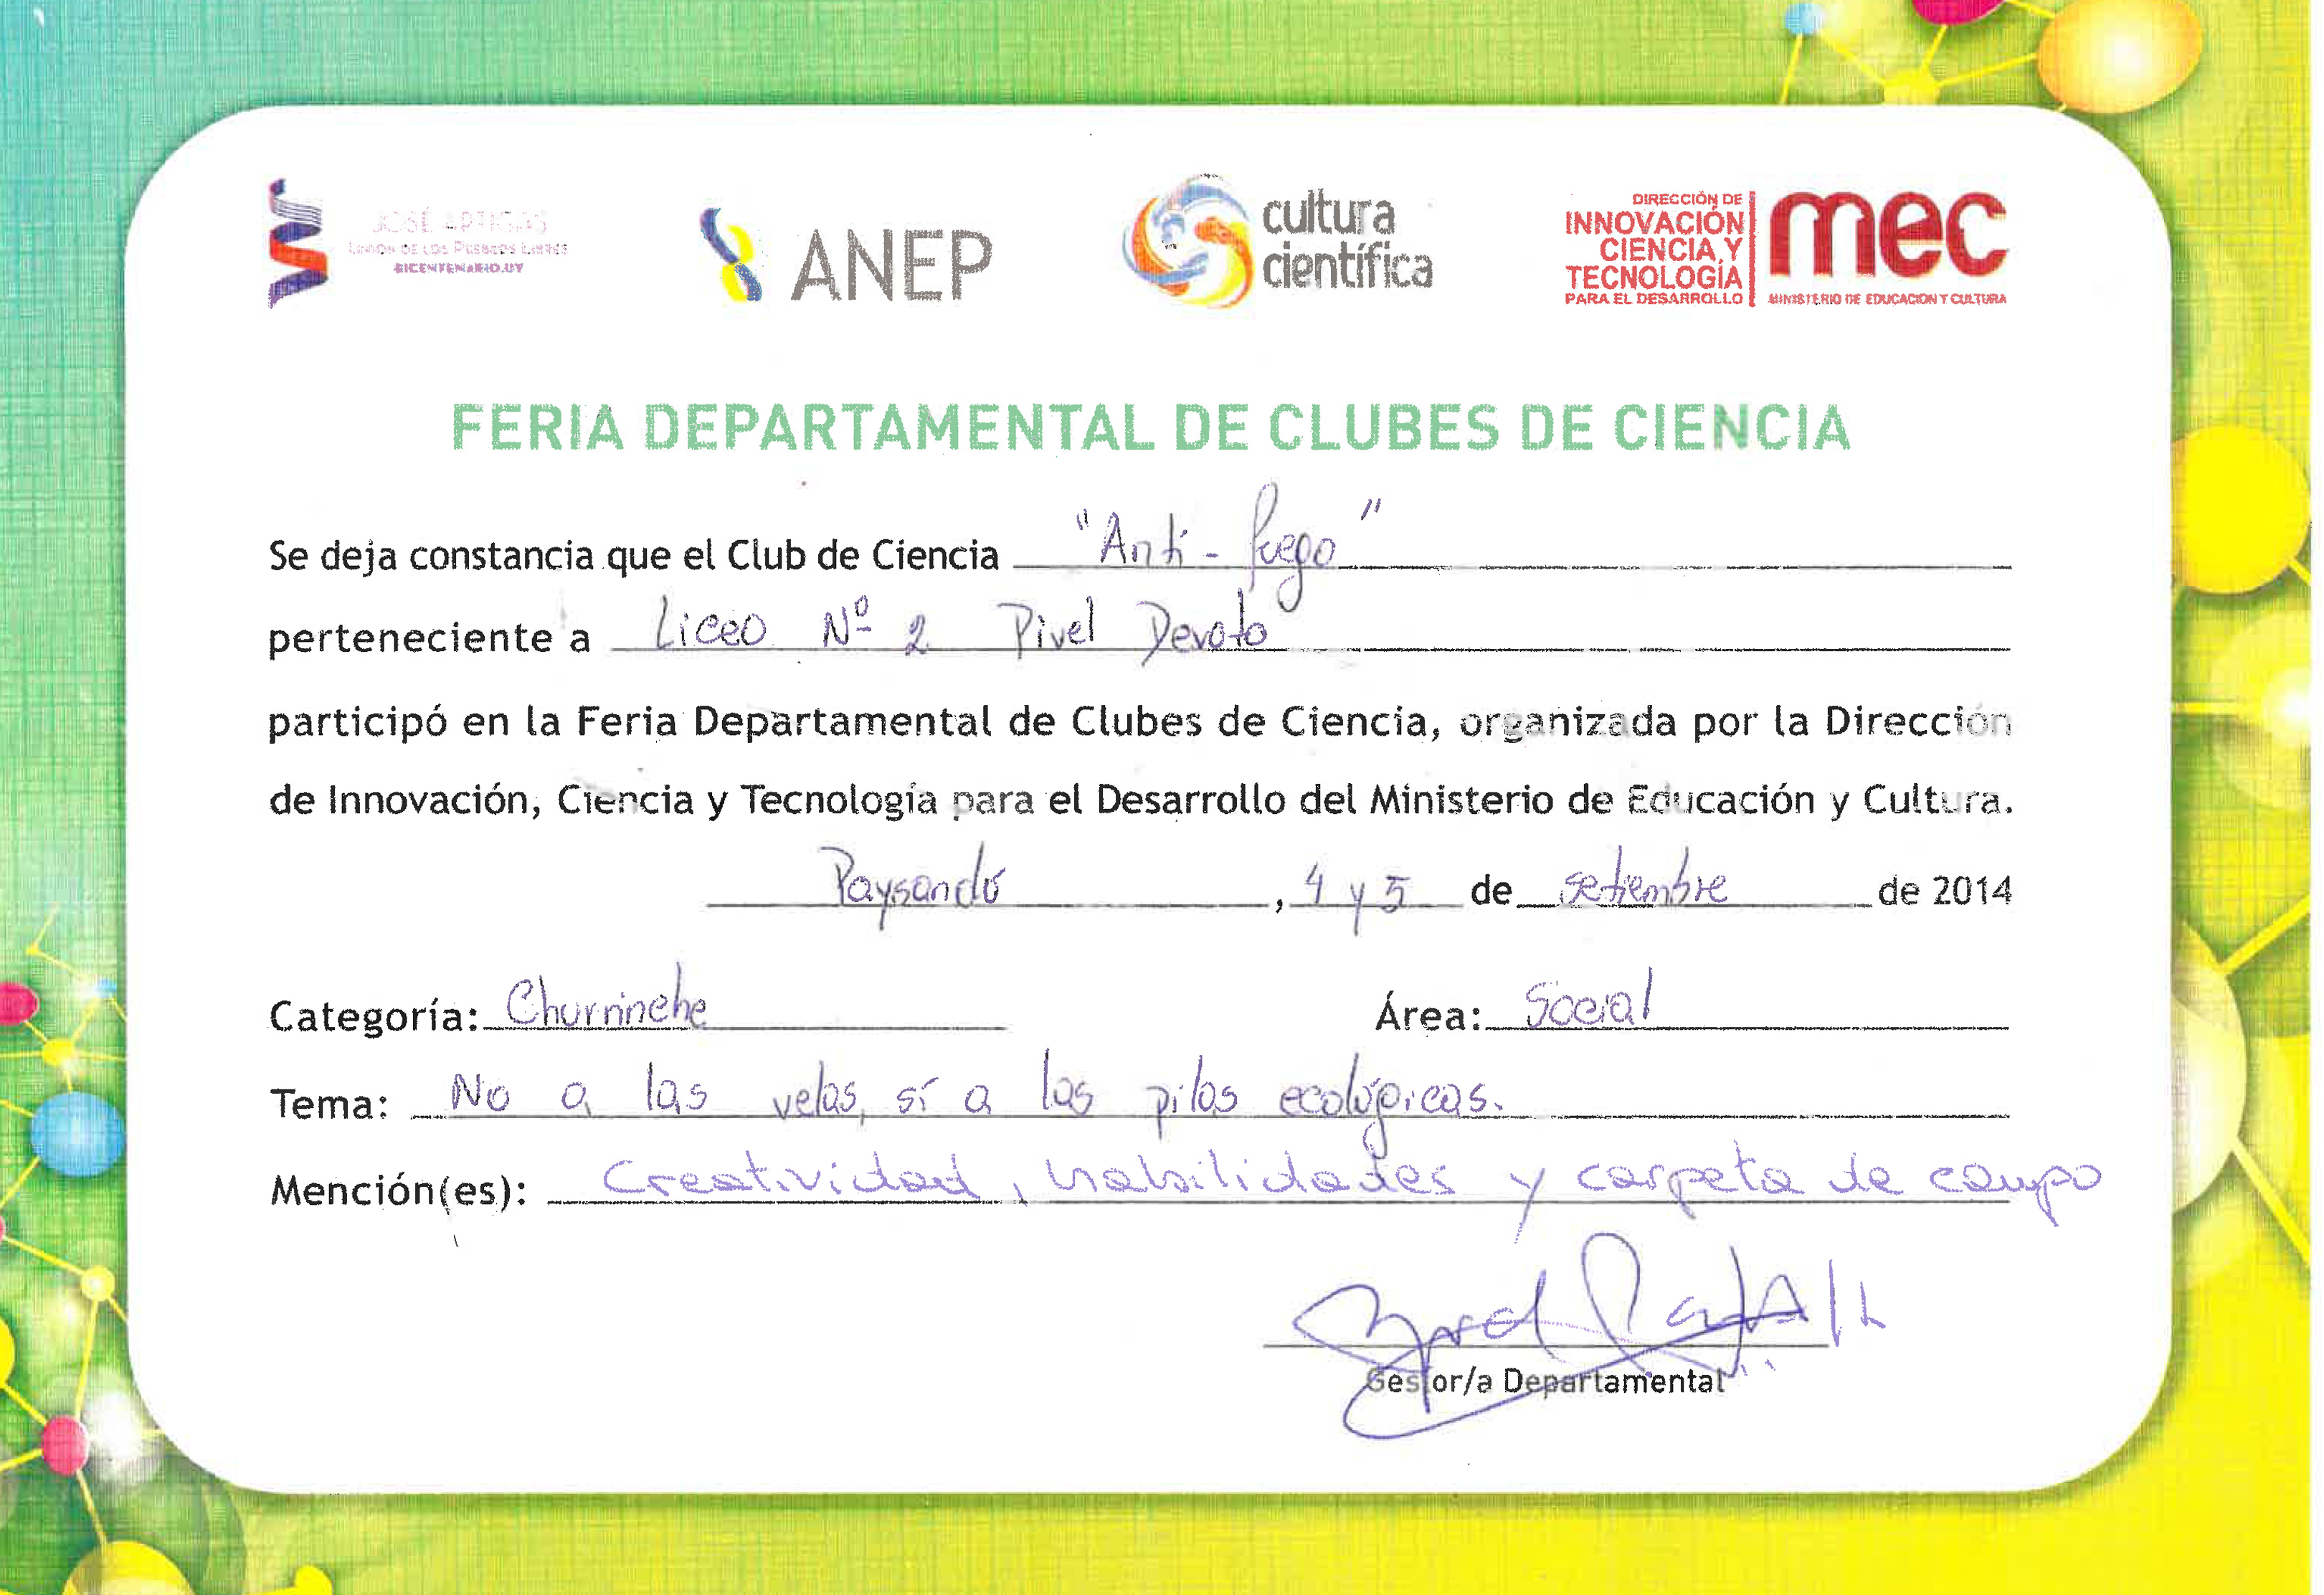 JOSÉ ARTIGAS
UNIÓN DE LOS PUEBLOS LIBRES
BICENTENARIO.UY
ANEP
cultura
científica
DIRECCIÓN DE
INNOVACIÓN
CIENCIA Y
TECNOLOGÍA
PARA EL DESARROLLO
mec
MINISTERIO DE EDUCACION Y CULTURA
FERIA DEPARTAMENTAL DE CLUBES DE CIENCIA
Se deja constancia que el Club de Ciencia "Anti-fuego"
perteneciente a Liceo Nº 2 Pivel Devoto
participó en la Feria Departamental de Clubes de Ciencia, organizada por la Dirección
de Innovación, Ciencia y Tecnología para el Desarrollo del Ministerio de Educación y Cultura.
Paysandú, 4 y 5 de setiembre de 2014
Categoría: Churrinche Área: Social
Tema: No a las velas, sí a las pilas ecológicas.
Mención(es): Creatividad, habilidades y carpeta de campo
Gestor/a Departamental